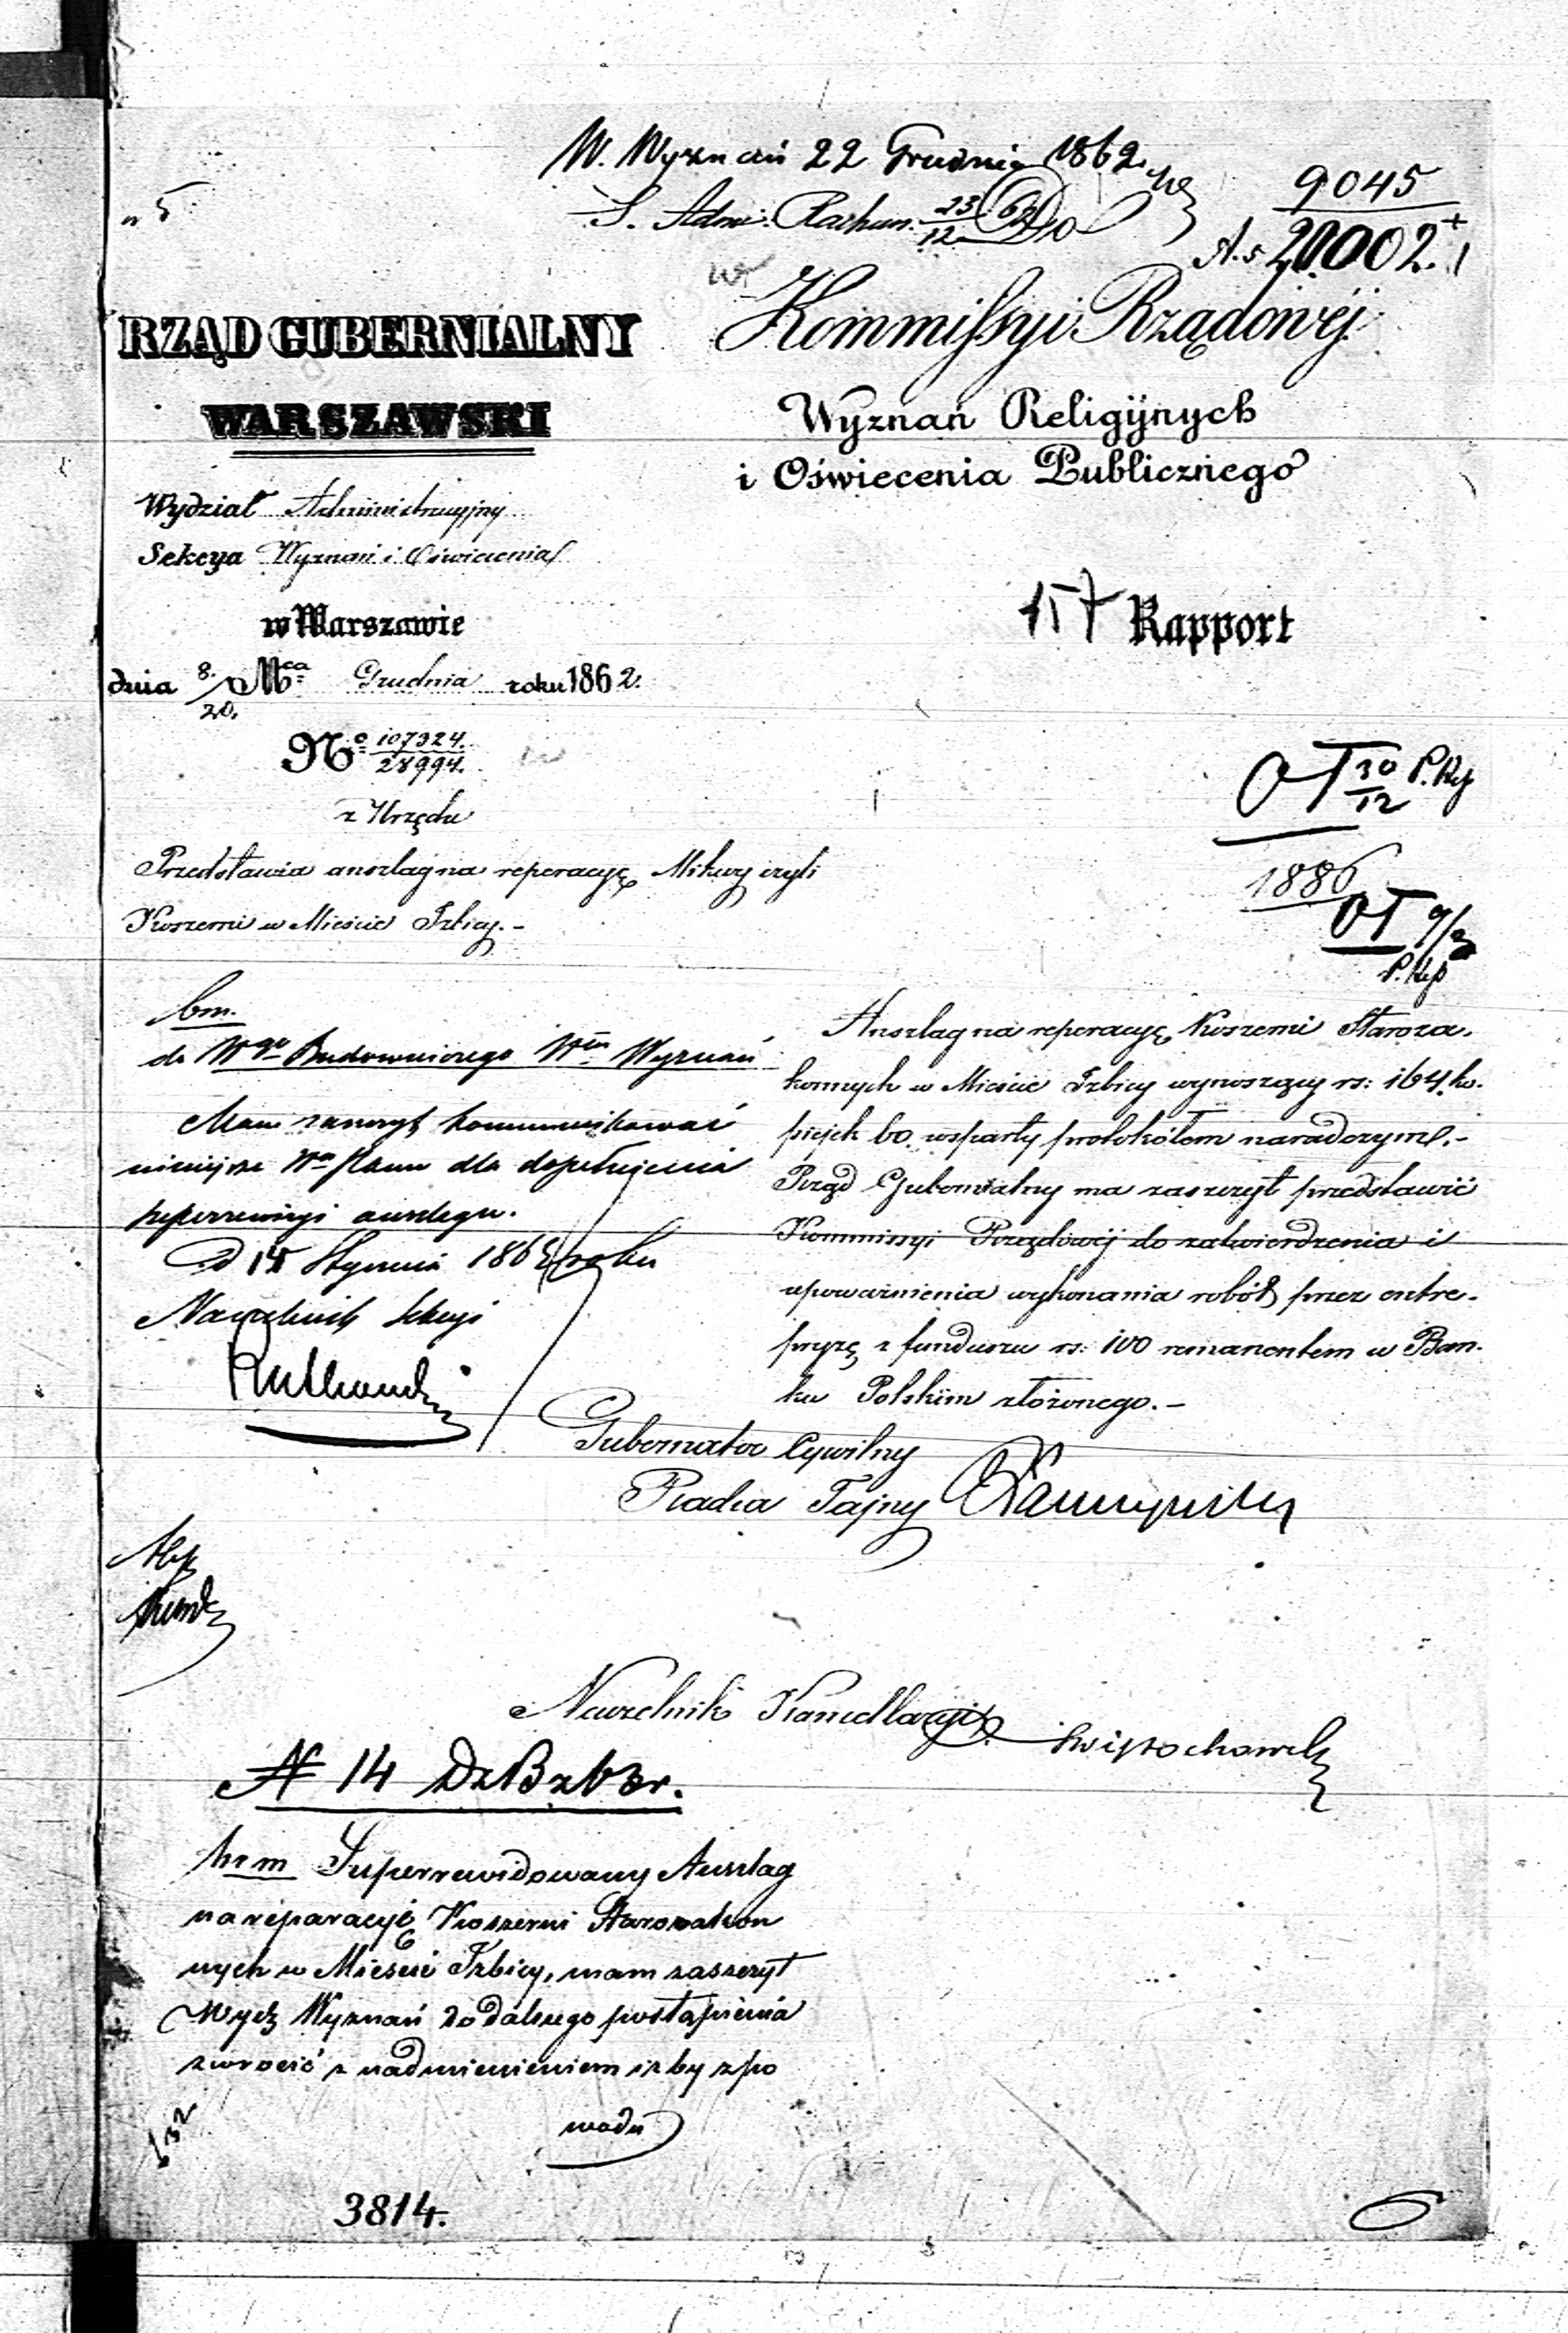 W. Wyznań 22 Grudnia 1862.
S. Adm: Rachun. 23/12 62
9045
A.s 20002.
n 5
RZĄD GUBERNIALNY
WARSZAWSKI
Kommissyi Rządowéj
Wyznań Religijnych
i Oświecenia Publicznego
Wydział Administracyjny
Sekcya Wyznań i Oświecenia
w Warszawie
dnia 8./20. Mca Grudnia roku 1862.
No 107324./28994.
z Urzędu
157 Rapport
Przedstawia anszlag na reperacyę Mikwy czyli
Koszerni w Mieście Izbicy.-
OT 30/12 P. Kep
1886
OT 9/3
P. Kep
bm.
do Wgo Budowniczego Wm Wyznań
Mam zaszczyt kommunikować
niniejsze Wm Panu dla dopełnienia
superrewizyi anszlagu.
D 14 Stycznia 1863 roku
Naczelnik Sekcyi
Anszlag na reperacyę Koszerni Staroza-
konnych w Mieście Izbicy wynoszący rs: 164. ko-
piejek 60. wsparty protokółem naradczym.-
Rząd Gubernialny ma zaszczyt przedstawić
Kommissyi Rządowéj do zatwierdzenia i
upoważnienia wykonania robót przez entre-
pryzę z funduszu rs: 100 remanentem w Ban-
ku Polskim złożonego.-
Gubernator Cywilny
Radca Tajny
Naczelnik Kancellaryi
Świętochowski
N 14 Dz B z 63 r.
br m Superrewidowany Anszlag
na reparacyję Koszerni Starozakon
nych w Mieście Izbicy, mam zaszczyt
Wydz Wyznań do dalszego postąpienia
zwrócić z nadmienieniem iżby z po
wodu
3814.